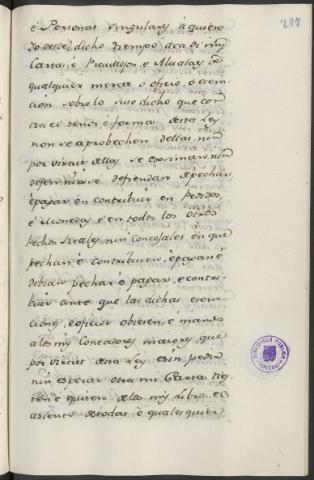 287
é Personas singulares, á quien
Yo desde el dicho tiempo acá dí mis
Cartas, é Previllejos, é Alvalaes de
qualquier merced, ó oficio, ó esem
cion, sobre lo suso dicho que con
tra el tenor é forma desta Ley
non se aprobechen dellas, nin
por virtud dellas se escusen, nin
defiendan de pechar,
é pagar, en contribuir en Pedidos,
é Monedas, é en todos los otros
pechos Reales, nin Concejales en que
pechan é contribuien, é pagan é
debian pechar é pagar, é contri-
buir ante que las dichas esem-
ciones, é oficios obiesen, é mando
á los mis Contadores mayores, que
por virtud desta Ley, è sin pedir
nin esperar otra mi Carta, tes-
ten é quiten de los mis Libros el
asiento de todas é qualesquier
BIBLIOTECA PUBLICA
TOLEDO